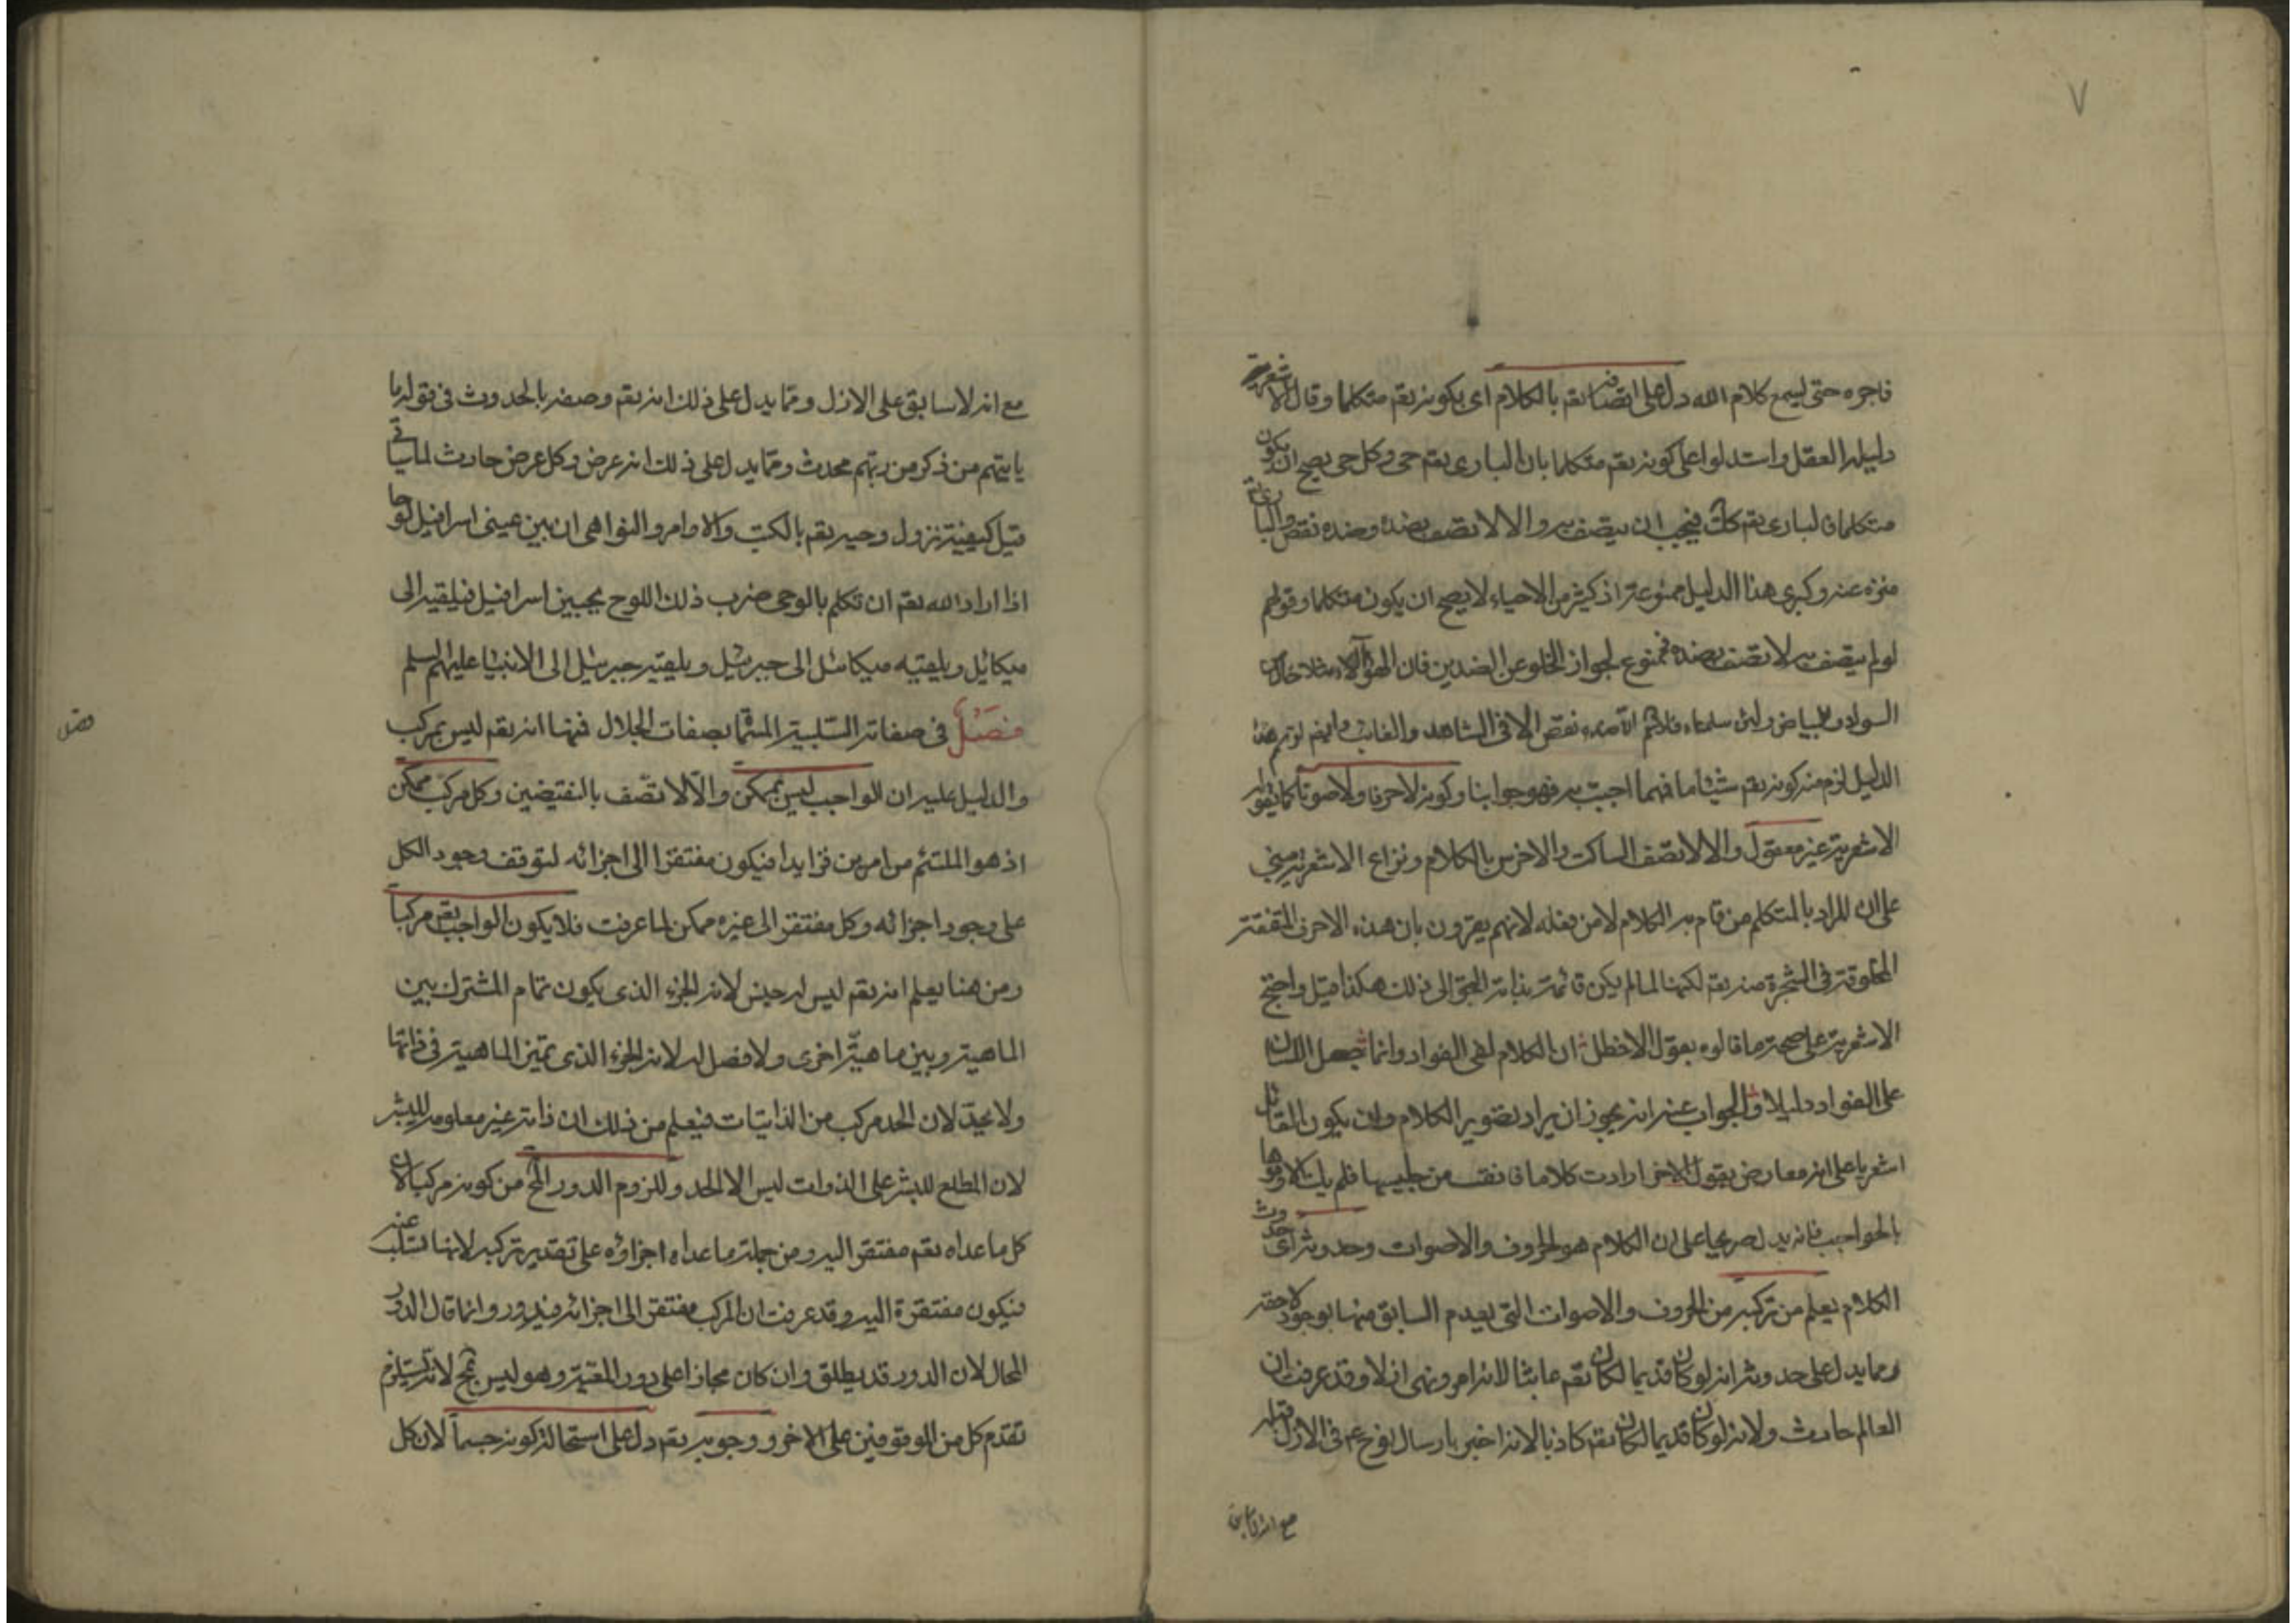 ٧
فاجره حتى يسمع كلام الله دل على اتصافه تعم بالكلام اى بكونه تعم متكلما وقال الاشعرية
دليله العقل واستدلوا على كونه تعم متكلما بان البارى تعم حى وكل حى يصح ان يكون
متكلما فالبارى تعم كك فيجب ان يتصف به والا لاتصف بضده وضده نقص والبارى تعم
منزه عنه وكبرى هذا الدليل ممنوعة اذ كثير من الاحياء لا يصح ان يكون متكلما وقولهم
لو لم يتصف به لاتصف بضده فممنوع لجواز الخلو عن الضدين فان الهواء مثلا خال عن
السواد والبياض ولئن سلمناه فلانم ان ضده نقص الا فى الشاهد والغائب وايضا لو تم هذا
الدليل لزم منه كونه تعم شيئا ما فبما اجيب به فهو جوابنا وكونه لا حرفا ولا صوتا كما تقوله
الاشعرية غير معقول والا لاتصف الساكت والاخرس بالكلام ونزاع الاشعرية مبنى
على ان المراد بالمتكلم من قام به الكلام لا من فعله لانهم يقرون بان هذه الاحرف المتفقة
المخلوقة فى الشجرة منه تعم لكنها لما لم يكن قائمة بذاته التجئ الى ذلك هكذا قيل واحتج
الاشعرية على صحة ما قالوه بقول الاخطل ان الكلام لفى الفواد وانما جعل اللسان
على الفواد دليلا والجواب عنه انه يجوز ان يراد تصوير الكلام وان يكون القائل
اشعريا على انه معارض بقول الاخر ارادت كلاما فاتقت من جليسها فلم يك الا ومؤها
بالحواجب فانه يدل صريحا على ان الكلام هو الحروف والاصوات وحدوثه اى حدوث
الكلام يعلم من تركبه من الحروف والاصوات التى يعدم السابق منها بوجود لاحقه
ومما يدل على حدوثه انه لو كان قديما لكان تعم عابثا لانه امر ونهى ازلا وقد عرفت ان
العالم حادث ولانه لو كان قديما لكان تعم كاذبا لانه اخبر بارسال نوح عم فى الازل
مع انه لا سابق
مع انه لا سابق على الازل ومما يدل على ذلك انه تعم وصفه بالحدوث فى قوله ما
ياتيهم من ذكر من ربهم محدث ومما يدل على ذلك انه عرض وكل عرض حادث لما سياتى
قيل كيفية نزول وحيه تعم بالكتب والاوامر والنواهى ان بين عينى اسرافيل لوحا
اذا اراد الله تعم ان تكلم بالوحى ضرب ذلك اللوح بجبين اسرافيل فيلقيه الى
ميكائيل ويلقيه ميكائيل الى جبرئيل ويلقيه جبرئيل الى الانبيا عليهم السلم
فصل
فصل فى صفاته السلبية المسماة بصفات الجلال فمنها انه تعم ليس بمركب
والدليل عليه ان الواجب ليس بممكن والا لاتصف بالنقيضين وكل مركب ممكن
اذ هو الملتئم من امرين فزايدا فيكون مفتقرا الى اجزائه لتوقف وجود الكل
على وجود اجزائه وكل مفتقر الى غيره ممكن لما عرفت فلا يكون الواجب تعم مركبا
ومن هنا يعلم انه تعم ليس له جنس لانه الجزء الذى يكون تمام المشترك بين
الماهية وبين ماهية اخرى ولا فصل له لانه الجزء الذى تميز الماهية فى ذاتها
ولا يحد لان الحد مركب من الذاتيات فيعلم من ذلك ان ذاته غير معلومة للبشر
لان المطلع للبشر على الذوات ليس الا الحد وللزوم الدور المح من كونه مركبا لان
كل ما عداه تعم مفتقر اليه ومن جملة ما عداه اجزاؤه على تقدير تركبه لانها تسلب عنه
فيكون مفتقرة اليه وقد عرفت ان المركب مفتقر الى اجزائه فيدور وانما قال الدور
المحال لان الدور قد يطلق وان كان مجازا على دور المعية وهو ليس بمح لانه لا يستلزم
تقدم كل من الموقوفين على الاخر ووجوبه تعم دل على استحالة كونه جسما لان كل